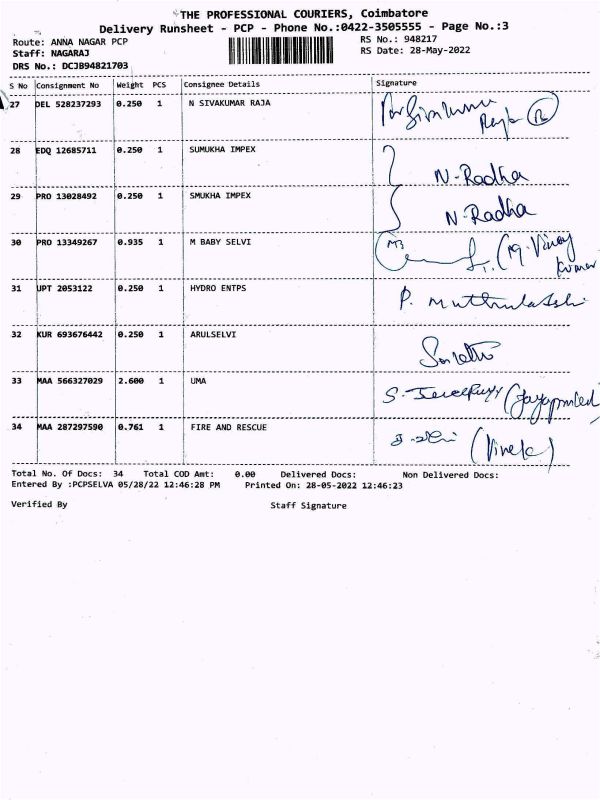 THE PROFESSIONAL COURIERS, Coimbatore
Delivery Runsheet - PCP - Phone No.:0422-3505555 - Page No.:3
Route: ANNA NAGAR PCP RS No.: 948217
Staff: NAGARAJ RS Date: 28-May-2022
DRS No.: DCJB94821703
S No Consignment No Weight PCS Consignee Details Signature
27 DEL 528237293 0.250 1 N SIVAKUMAR RAJA
28 EDQ 12685711 0.250 1 SUMUKHA IMPEX N-Radha
29 PRO 13028492 0.250 1 SMUKHA IMPEX N-Radha
30 PRO 13349267 0.935 1 M BABY SELVI (M. Vinay
Kumar
31 UPT 2053122 0.250 1 HYDRO ENTPS P.
32 KUR 693676442 0.250 1 ARULSELVI
33 MAA 566327029 2.600 1 UMA S.
34 MAA 287297590 0.761 1 FIRE AND RESCUE (Vivek)
Total No. Of Docs: 34 Total COD Amt: 0.00 Delivered Docs: Non Delivered Docs:
Entered By :PCPSELVA 05/28/22 12:46:28 PM Printed On: 28-05-2022 12:46:23
Verified By Staff Signature